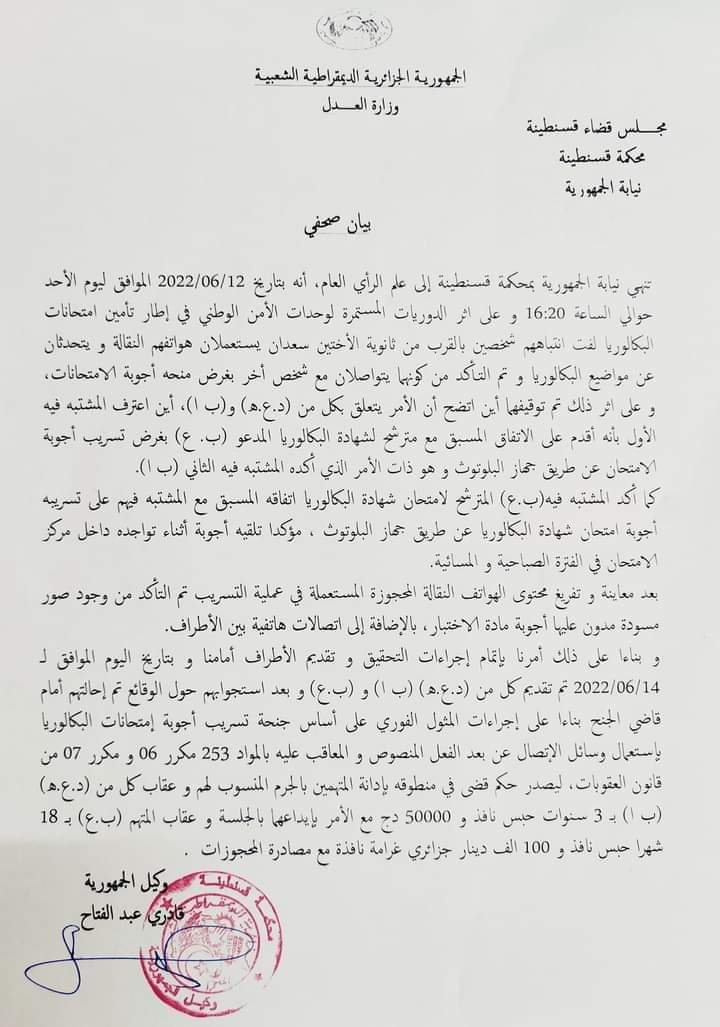 الجمهورية الجزائرية الديمقراطية الشعبية
وزارة العـــدل
مجـــلس قضاء قسنطينة
محكمة قسنطينة
نيابة الجمهورية
بيان صحفي
تنهي نيابة الجمهورية بمحكمة قسنطينة إلى علم الرأي العام، أنه بتاريخ 2022/06/12 الموافق ليوم الأحد
حوالي الساعة 16:20 و على اثر الدوريات المستمرة لوحدات الأمن الوطني في إطار تأمين امتحانات
البكالوريا لفت انتباههم شخصين بالقرب من ثانوية الأختين سعدان يستعملان هواتفهم النقالة و يتحدثان
عن مواضيع البكالوريا و تم التأكد من كونهما يتواصلان مع شخص أخر بغرض منحه أجوبة الامتحانات،
و على اثر ذلك تم توقيفهما أين اتضح أن الأمر يتعلق بكل من (د.ع.ه) و(ب ا)، أين اعترف المشتبه فيه
الأول بأنه أقدم على الاتفاق المسبق مع مترشح لشهادة البكالوريا المدعو (ب. ع) بغرض تسريب أجوبة
الامتحان عن طريق جهاز البلوتوث و هو ذات الأمر الذي أكده المشتبه فيه الثاني (ب ا).
كما أكد المشتبه فيه(ب.ع) المترشح لامتحان شهادة البكالوريا اتفاقه المسبق مع المشتبه فيهم على تسريبه
أجوبة امتحان شهادة البكالوريا عن طريق جهاز البلوتوث ، مؤكدا تلقيه أجوبة أثناء تواجده داخل مركز
الامتحان في الفترة الصباحية و المسائية.
بعد معاينة و تفريغ محتوى الهواتف النقالة المحجوزة المستعملة في عملية التسريب تم التأكد من وجود صور
مسودة مدون عليها أجوبة مادة الاختبار، بالإضافة إلى اتصالات هاتفية بين الأطراف.
و بناءا على ذلك أمرنا بإتمام إجراءات التحقيق و تقديم الأطراف أمامنا و بتاريخ اليوم الموافق لـ
2022/06/14 تم تقديم كل من (د.ع.ه) (ب ا) و (ب.ع) و بعد استجوابهم حول الوقائع تم إحالتهم أمام
قاضي الجنح بناءا على إجراءات المثول الفوري على أساس جنحة تسريب أجوبة إمتحانات البكالوريا
بإستعمال وسائل الإتصال عن بعد الفعل المنصوص و المعاقب عليه بالمواد 253 مكرر 06 و مكرر 07 من
قانون العقوبات، ليصدر حكم قضى في منطوقه بإدانة المتهمين بالجرم المنسوب لهم و عقاب كل من (د.ع.ه)
(ب ا) بـ 3 سنوات حبس نافذ و 50000 دج مع الأمر بإيداعهما بالجلسة و عقاب المتهم (ب.ع) بـ 18
شهرا حبس نافذ و 100 الف دينار جزائري غرامة نافذة مع مصادرة المحجوزات .
وكيل الجمهورية
قادري عبد الفتاح
محكمة قسنطينة
وكيل الجمهورية